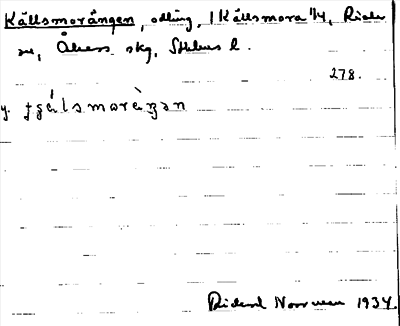 Källsmorängen, odling, 1 Källsmora 1/4, Rial
sn, Åkers skg, Sthlms l.
278.
y. tʃälsmoràŋən
Rickard Norrman 1934.